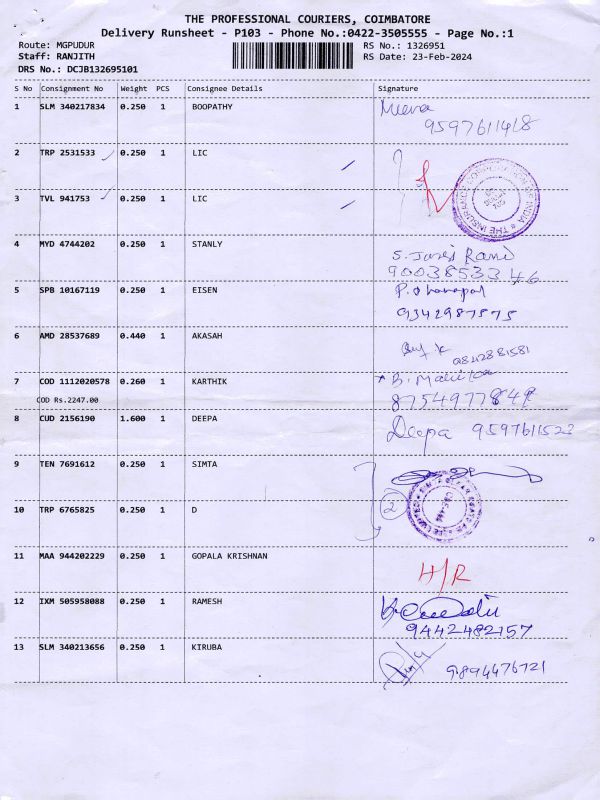 THE PROFESSIONAL COURIERS, COIMBATORE
Delivery Runsheet - P103 - Phone No.:0422-3505555 - Page No.:1
Route: MGPUDUR RS No.: 1326951
Staff: RANJITH RS Date: 23-Feb-2024
DRS No.: DCJB132695101
S No Consignment No Weight PCS Consignee Details Signature
1 SLM 340217834 0.250 1 BOOPATHY Meena
9597611418
2 TRP 2531533 0.250 1 LIC
3 TVL 941753 0.250 1 LIC
4 MYD 4744202 0.250 1 STANLY
S. Janet Rani
9003853346
5 SPB 10167119 0.250 1 EISEN P. Dhanapal
9342987575
6 AMD 28537689 0.440 1 AKASAH
9842881581
7 COD 1112020578 0.260 1 KARTHIK
COD Rs.2247.00 8754977849
8 CUD 2156190 1.600 1 DEEPA Deepa 9597611523
9 TEN 7691612 0.250 1 SIMTA
10 TRP 6765825 0.250 1 D 2
11 MAA 944202229 0.250 1 GOPALA KRISHNAN
H/R
12 IXM 505958088 0.250 1 RAMESH
9442482157
13 SLM 340213656 0.250 1 KIRUBA
9894476721